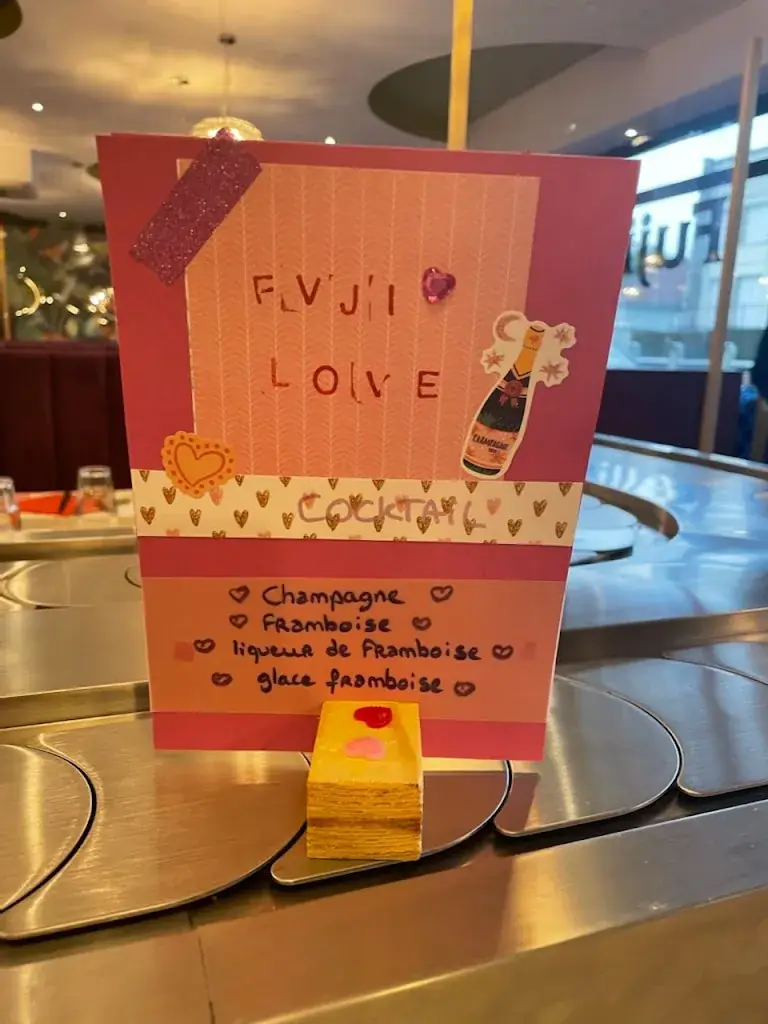 Fuji
FUJI
LOVE
CHAMPAGNE
COCKTAIL
Champagne
Framboise
liqueur de Framboise
glace framboise